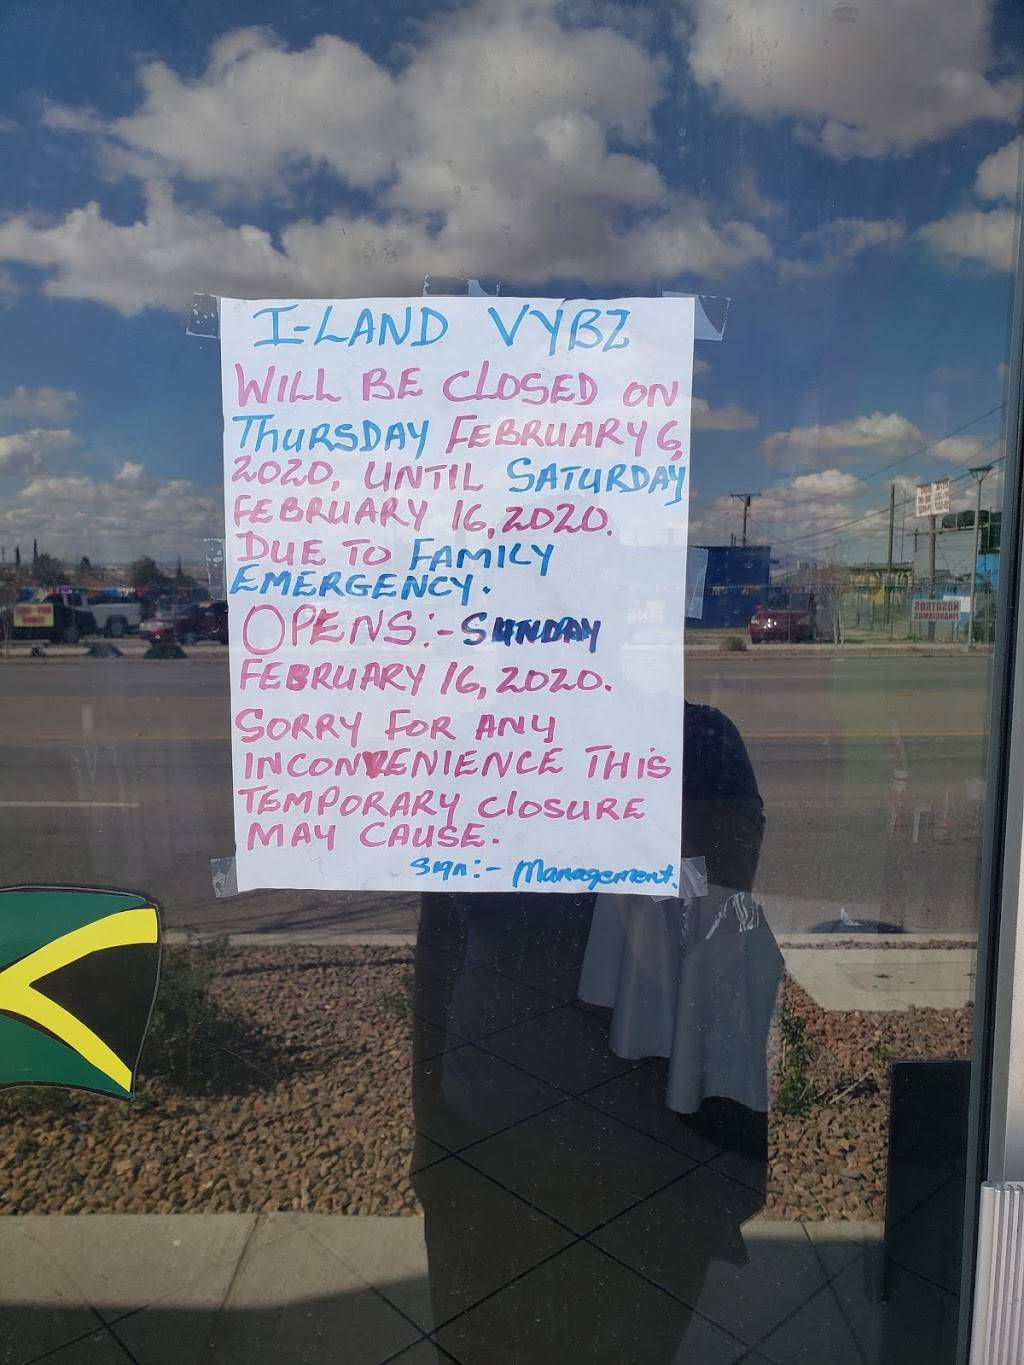 I-LAND VYBZ
WILL BE CLOSED ON
THURSDAY FEBRUARY 6,
2020, UNTIL SATURDAY
FEBRUARY 16, 2020.
DUE TO FAMILY
EMERGENCY.
OPENS:- SUNDAY
FEBRUARY 16, 2020.
SORRY FOR ANY
INCONVENIENCE THIS
TEMPORARY CLOSURE
MAY CAUSE.
Sign:- Management.
NOSOTROS